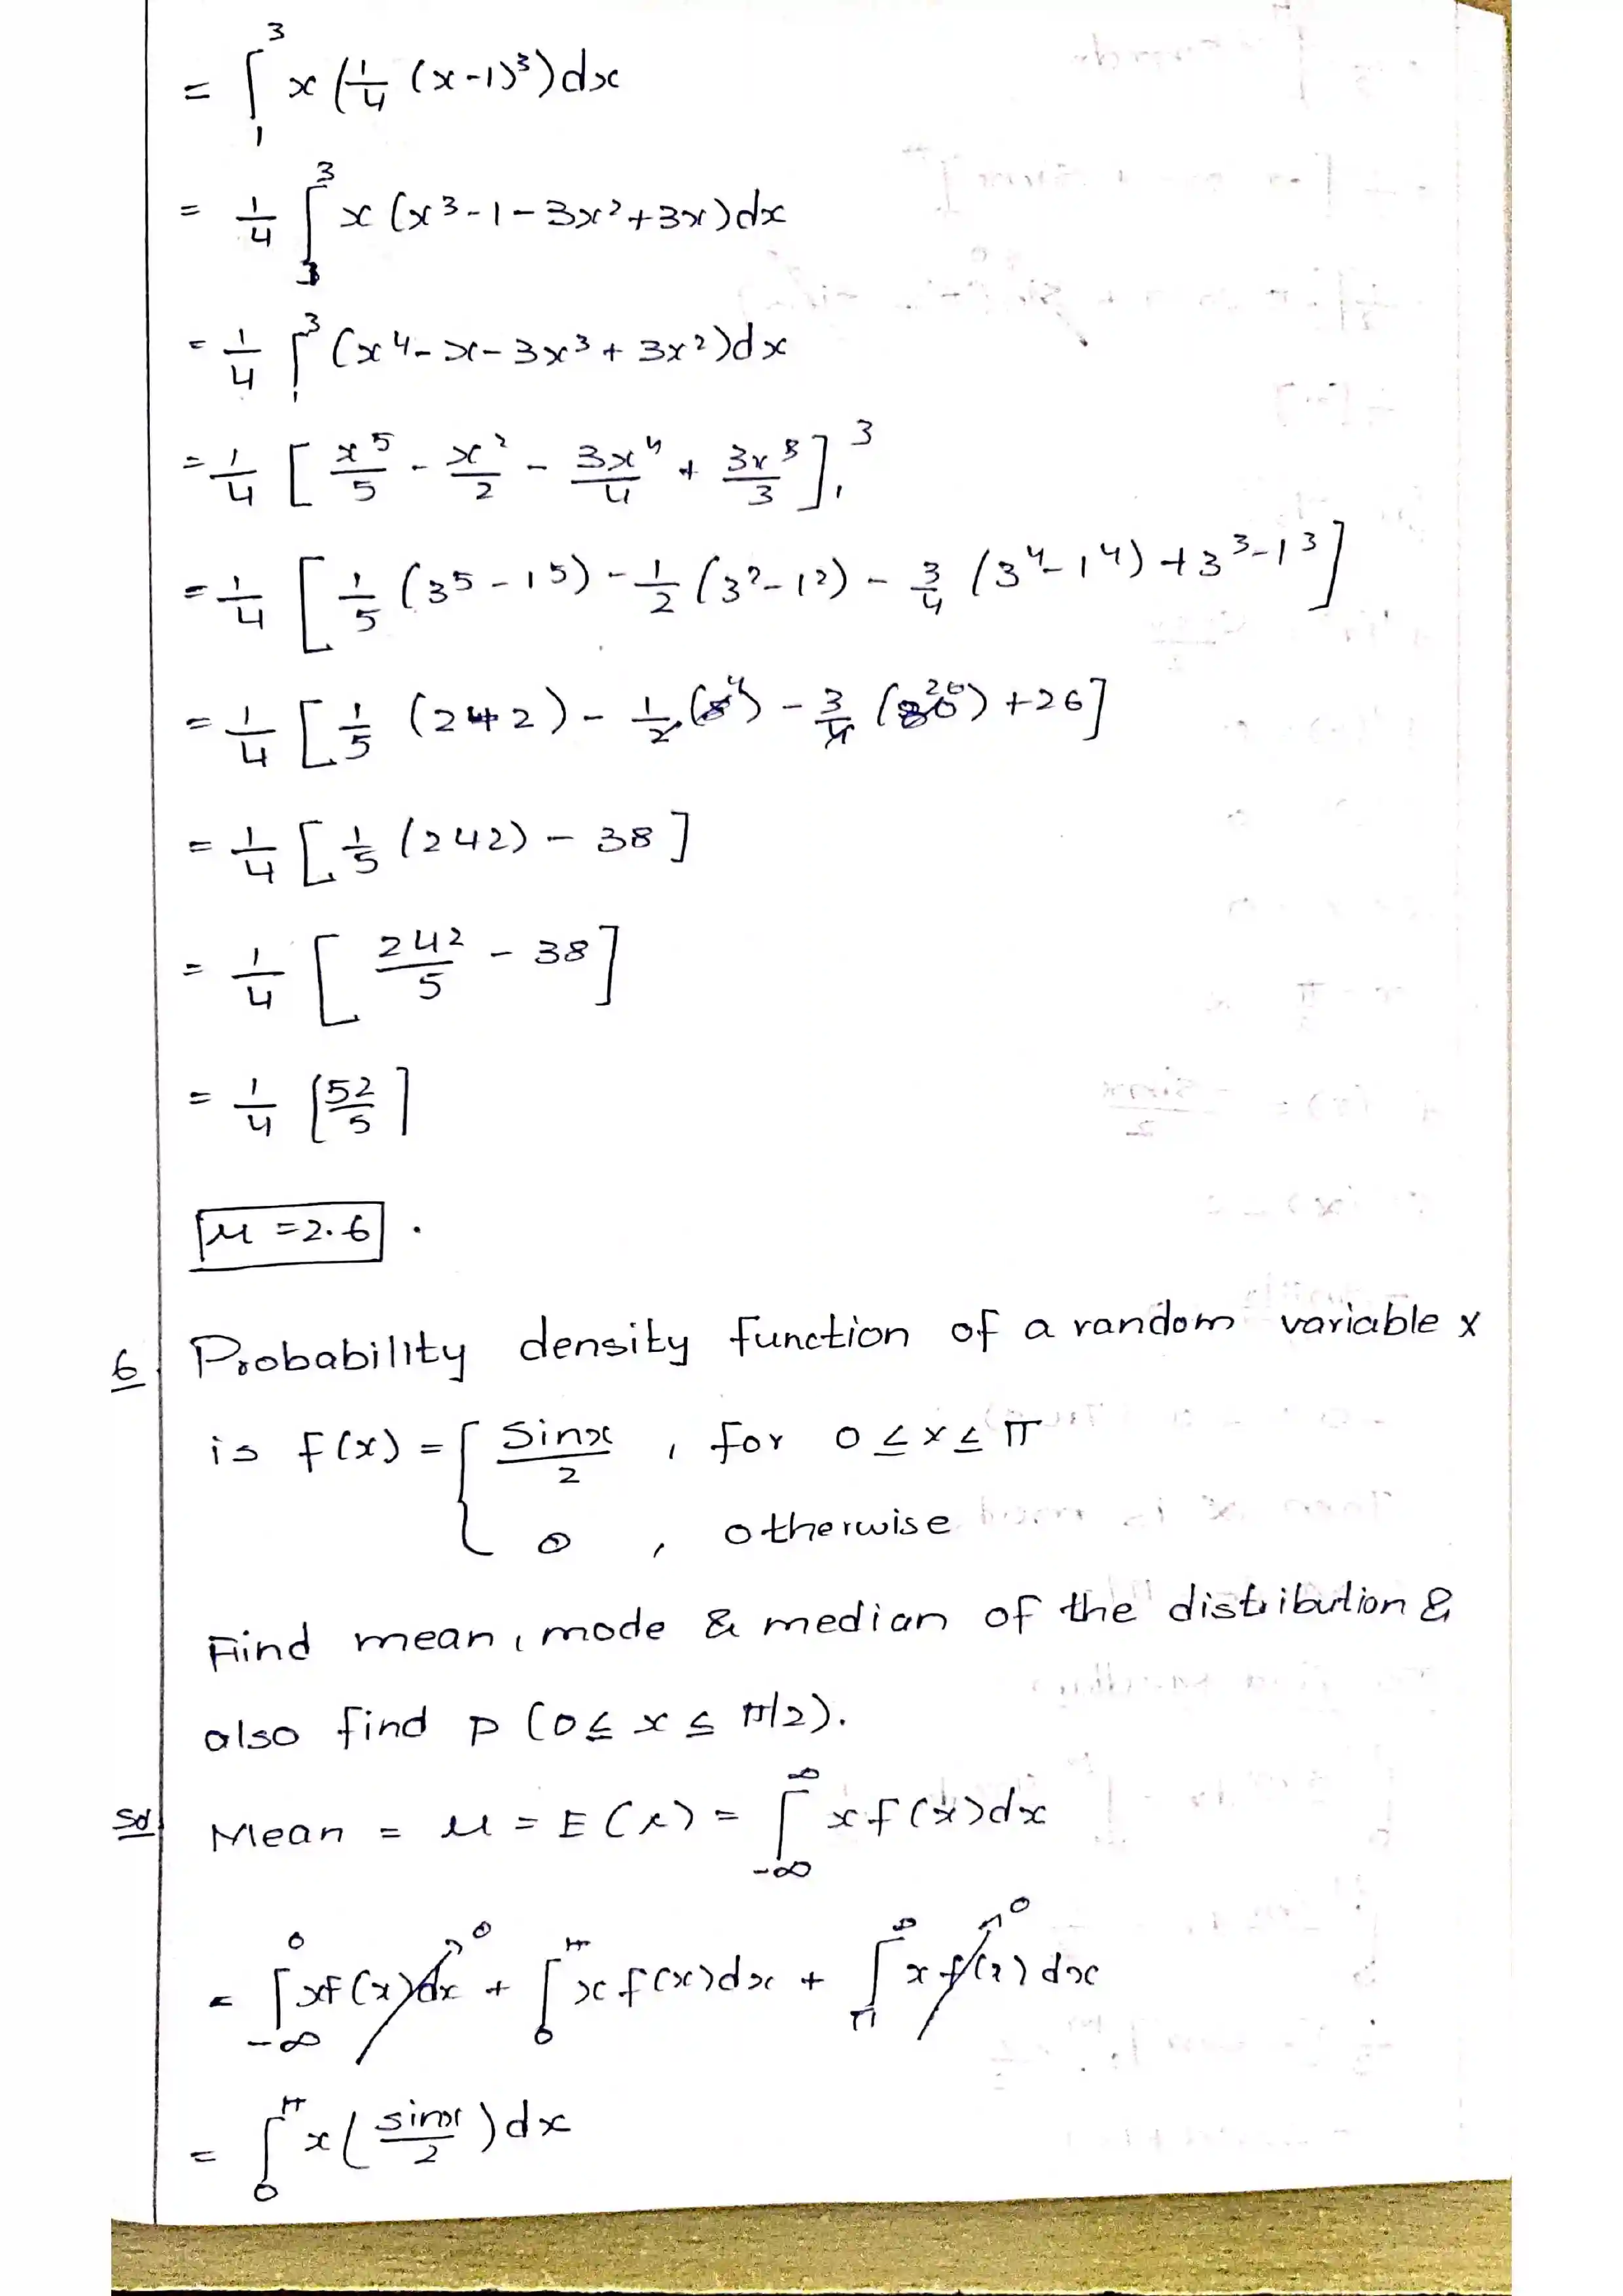 = ∫₁³ x (1/4 (x-1)³) dx
= 1/4 ∫₃³ x (x³ - 1 - 3x² + 3x) dx
= 1/4 ∫₁³ (x⁴ - x - 3x³ + 3x²) dx
= 1/4 [ x⁵/5 - x²/2 - 3x⁴/4 + 3x³/3 ]₁³
= 1/4 [ 1/5 (3⁵ - 1⁵) - 1/2 (3² - 1²) - 3/4 (3⁴ - 1⁴) + 3³ - 1³ ]
= 1/4 [ 1/5 (242) - 1/2 (8) 4 - 3/4 (80) 20 + 26 ]
= 1/4 [ 1/5 (242) - 38 ]
= 1/4 [ 242/5 - 38 ]
= 1/4 [ 52/5 ]
μ = 2.6 .
6 Probability density function of a random variable x
is f(x) = { sinx/2 , for 0 ≤ x ≤ π
0 , otherwise
Find mean, mode & median of the distribution &
also find p (0 ≤ x ≤ π/2).
Sol Mean = μ = E(x) = ∫₋∞^∞ x f(x) dx
= ∫₋∞^0 x f(x) dx 0 + ∫₀^π x f(x) dx + ∫π^∞ x f(x) dx 0
= ∫₀^π x ( sinx/2 ) dx